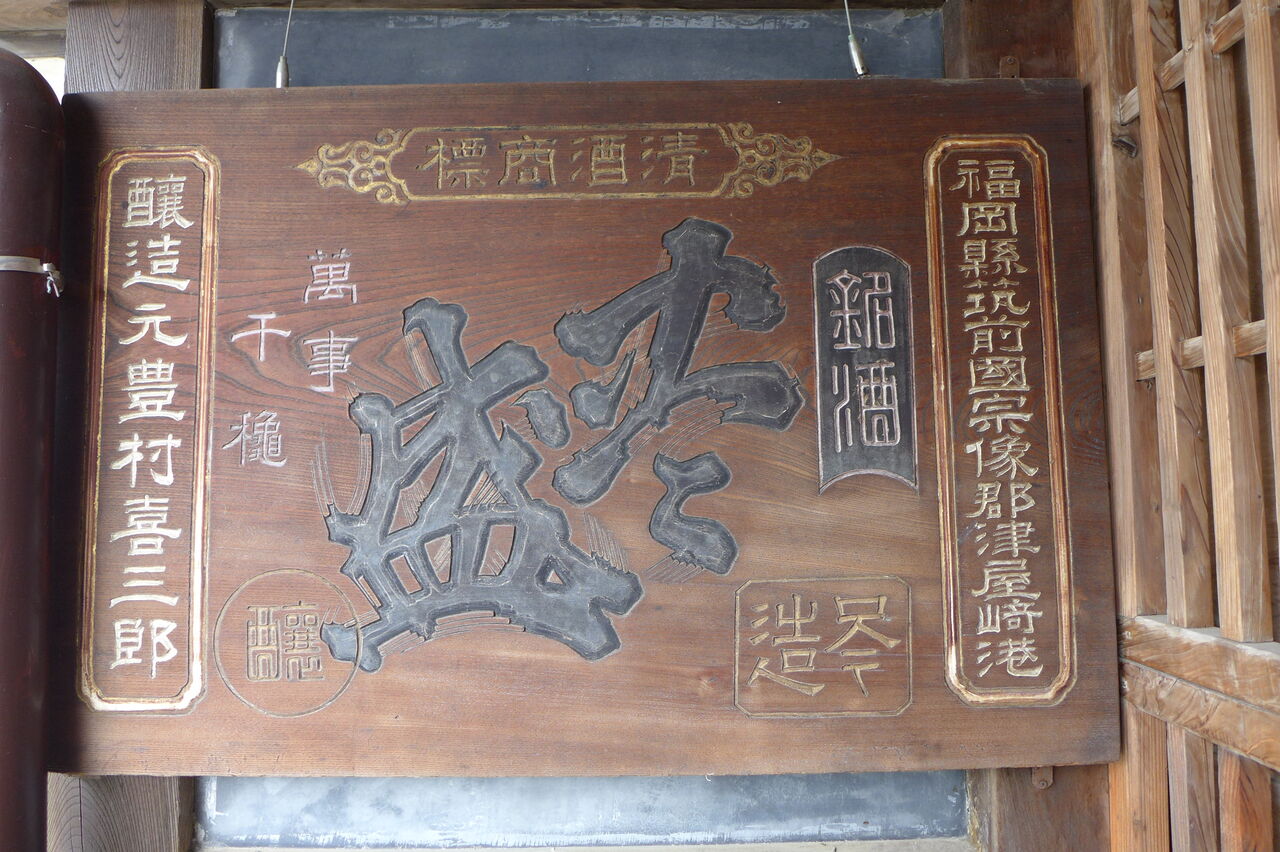 清酒商標
福岡縣筑前國宗像郡津屋﨑港
銘酒
盛
造
萬事
千龝
釀
釀造元豊村喜三郎